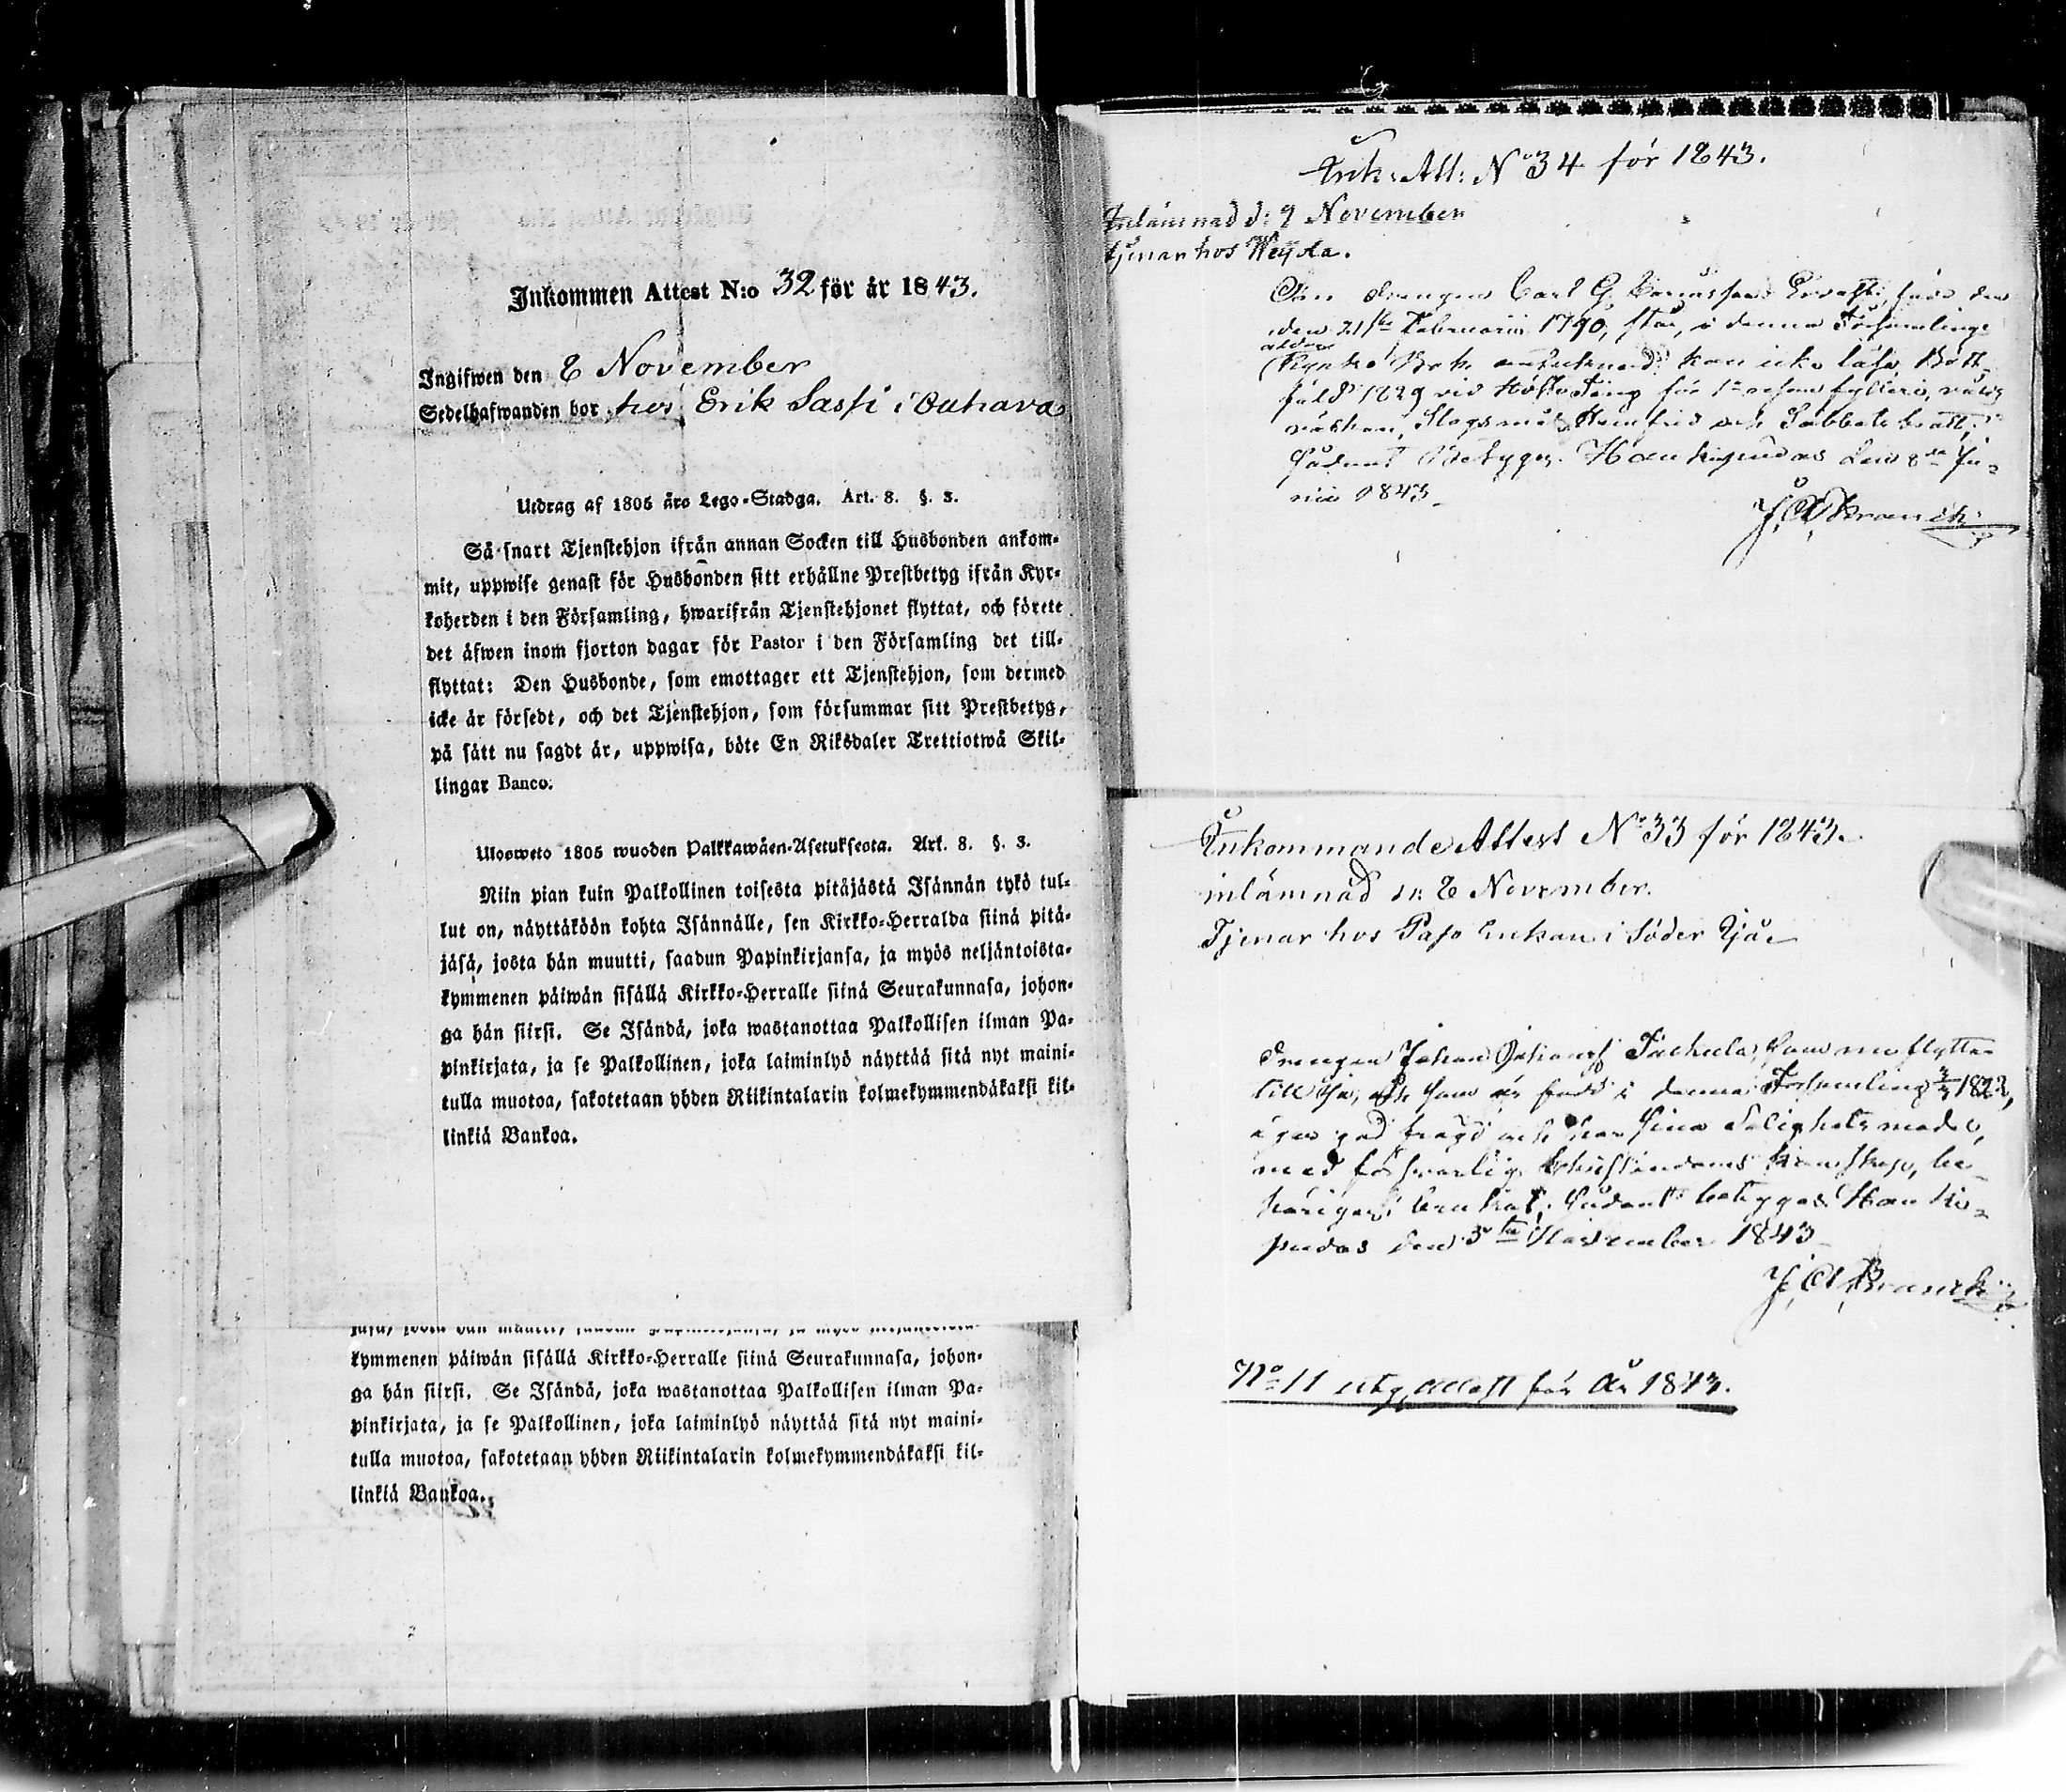 Inkommen Attest N:o 32 för år 1843.
Ingifwen den 8 November
Sedelhafwanden bor hos Erik Sassi i Outrava
Utdrag af 1805 års Lego-Stadga. Art. 8. §. 3.
Så snart Tjenstehjon ifrån annan Socken till Husbonden ankom-
mit, uppwise genast för Husbonden sitt erhållne Prestbetyg ifrån Kyr-
koherden i den Församling, hwarifrån Tjenstehjonet flyttat, och förete
det äfwen inom fjorton dagar för Pastor i den Församling det till-
flyttat: Den Husbonde, som emottager ett Tjenstehjon, som dermed
icke är försedt, och det Tjenstehjon, som försummar sitt Prestbetyg,
på sätt nu sagdt är, uppwisa, böte En Riksdaler Trettiotwå Skil-
lingar Banco.
Ulosweto 1805 wuoden Palkkawäen-Asetuksesta. Art. 8. §. 3.
Niin pian kuin Palkollinen toisesta pitäjästä Isännän tykö tul-
lut on, näyttäköön kohta Isännälle, sen Kirkko-Herralda siinä pitä-
jäsä, josta hän muutti, saadun Papinkirjansa, ja myös neljäntoista-
kymmenen päiwän sisällä Kirkko-Herralle siinä Seurakunnasa, johon-
ga hän siirsi. Se Isändä, joka wastanottaa Palkollisen ilman Pa-
pinkirjata, ja se Palkollinen, joka laiminlyö näyttää sitä nyt maini-
tulla muotoa, sakotetaan yhden Riikintalarin kolmekymmendäkaksi kil-
linkiä Bankoa.
kymmenen päiwän sisällä Kirkko-Herralle siinä Seurakunnasa, johon-
ga hän siirsi. Se Isändä, joka wastanottaa Palkollisen ilman Pa-
pinkirjata, ja se Palkollinen, joka laiminlyö näyttää sitä nyt maini-
tulla muotoa, sakotetaan yhden Riikintalarin kolmekymmendäkaksi kil-
linkiä Bankoa.
Ink: Att: No 34 för 1843.
Inlämnad d: 9 November
tjenar hos Weijsta.
drengen Carl G. född den
den 21ste Februarii 1790, står i denna Församlings
kan icke läsa, Böt-
fäld 1829 vid HöstTing för 1a resan fylleri,
Slagsmål och Sabbats brott,
Sådant Betygar. Haukipudas den 8de Ju-
nii 1843
J. A. Franck
Inkommande Attest No 33 för 1843.
inlämnad d: 8 November.
Tjenar hos Pajo Enkan i Söder Ijå
Drengen Johan Johansf som nu flyttar
till Ijo, är född i denna Församling 1822,
äger god frägd och har sina Salighets medel,
med försvarlig Christendoms kunskap, be-
hörigen brukat; Sådant betygas Hauki-
pudas den 3de November 1843
J. A. Franck
No 11 utg. Attest för År 1843.